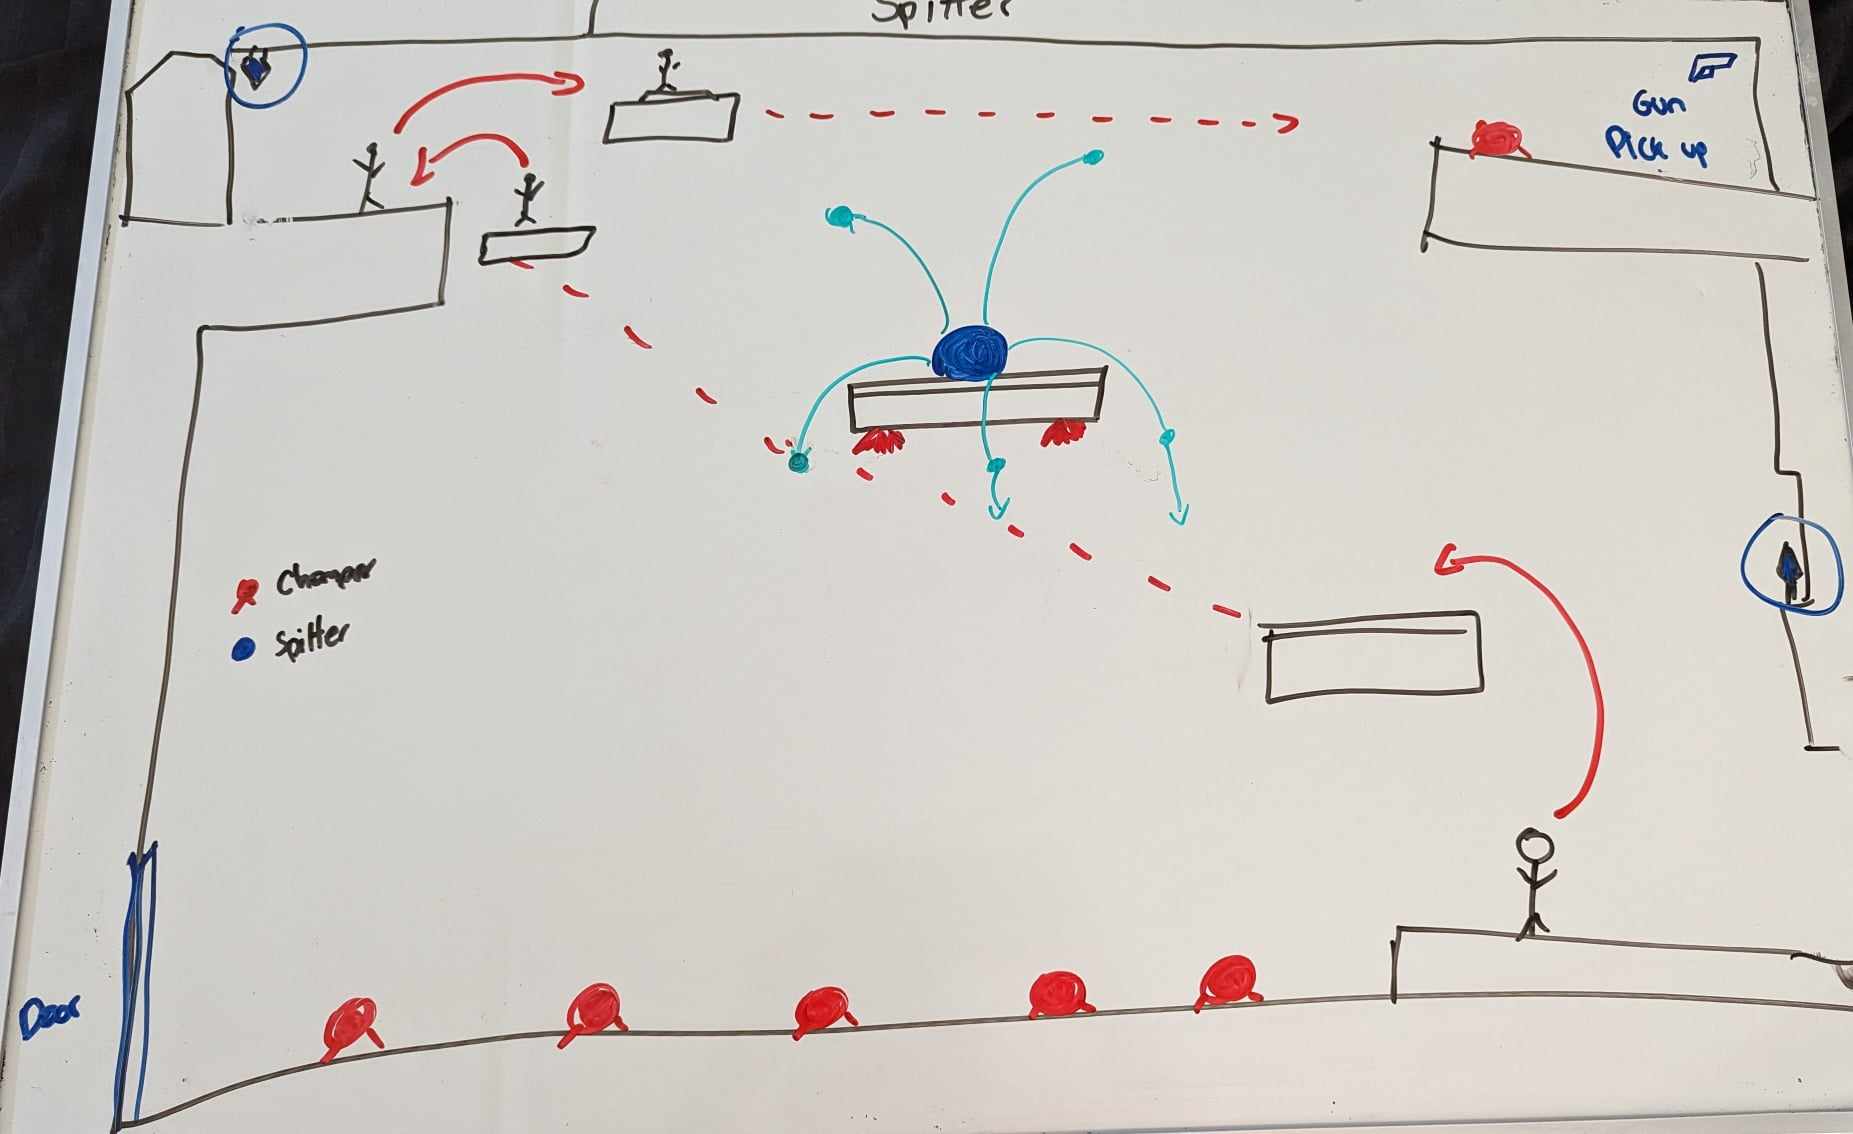 Spitter
Gun
Pick up
Chomper
Spitter
Door